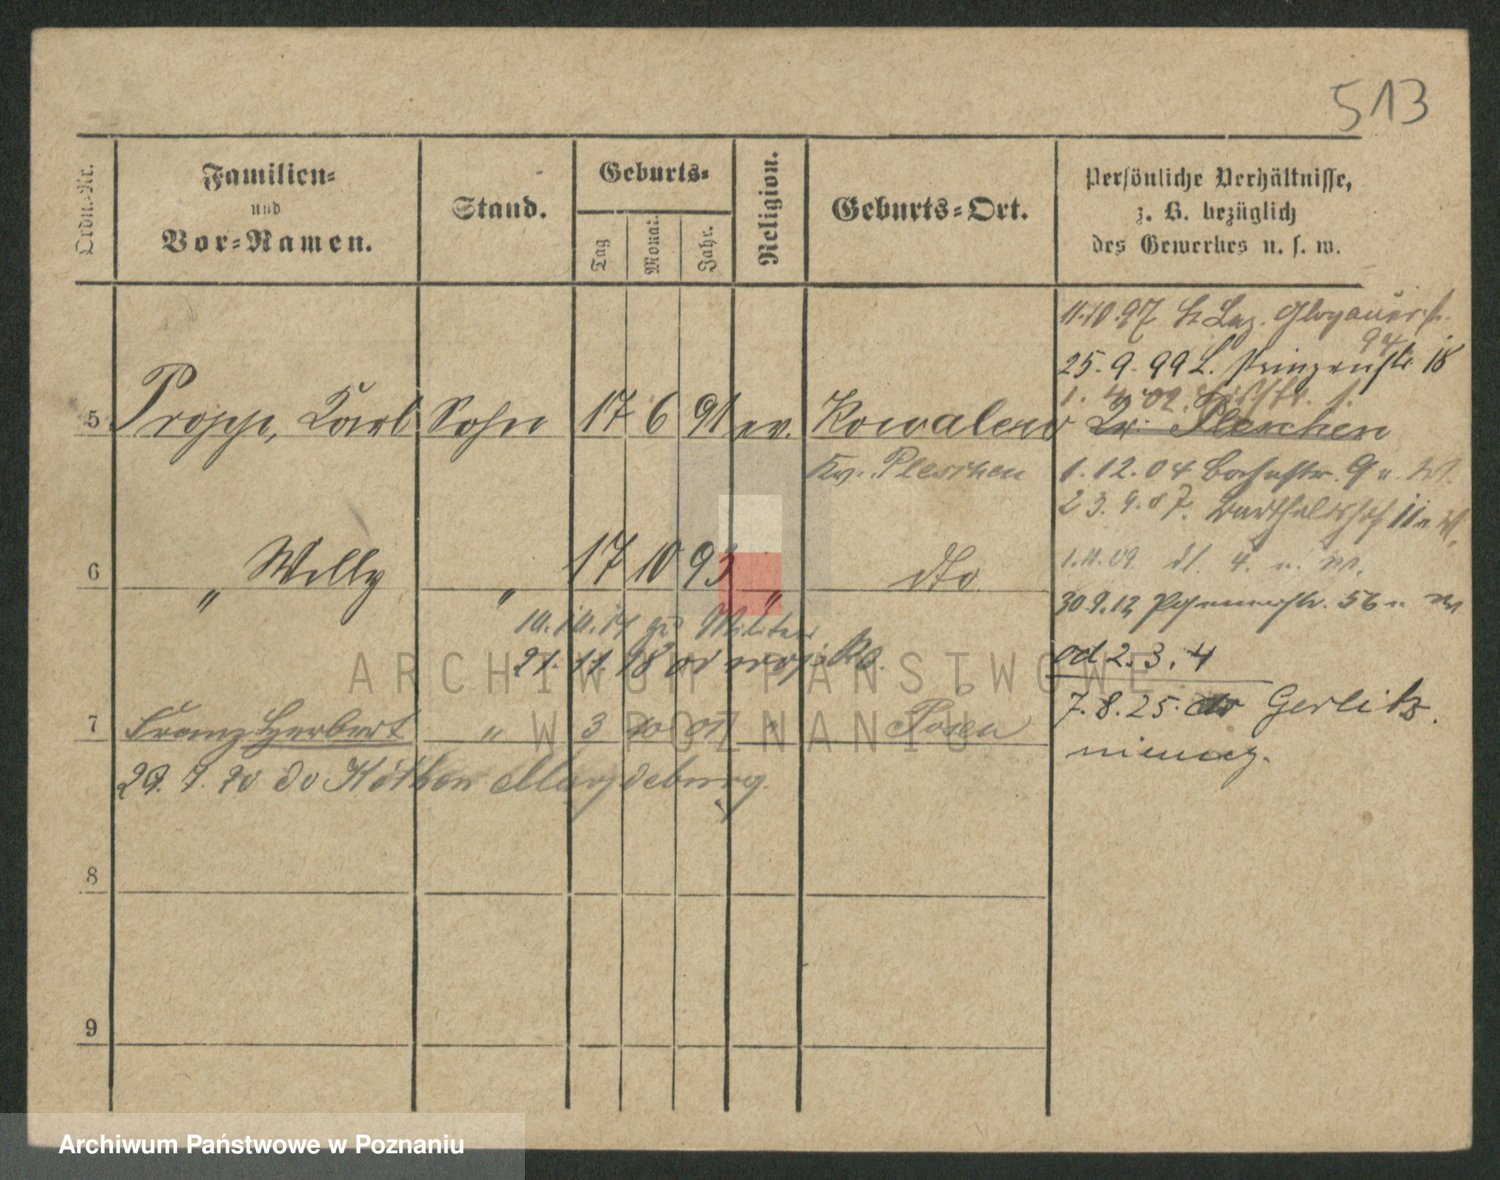 513
Ordn.-Nr.
Familien-
und
Vor-Namen.
Stand.
Geburts-
Tag
Monat.
Jahr.
Religion.
Geburts-Ort.
Persönliche Verhältnisse,
z. B. bezüglich
des Gewerbes u. s. w.
11.10.97 Laz. Glogauerstr.
94
25.9.99 L. Prinzenstr. 18
1. 4. 02.
5 Propp, Karl Sohn 17 6 91 ev. Kowalew Kr. Pleschen
Kr. Pleschen
1.12.04 Bachstr. 9
23.9.07. 11
6 " Willy " 17 10 93 " dto
1.11.09. 4.
30.9.12 Posenerstr. 56
21.11.18 od wojska.
od 2.3.4
7 Franz Herbert " 3 10 01 " Posen
7.8.25. do Gerlitz.
niemcy.
29.7.20 do Köthen Magdeburg.
8
9
ARCHIWUM PAŃSTWOWE
W POZNANIU
Archiwum Państwowe w Poznaniu